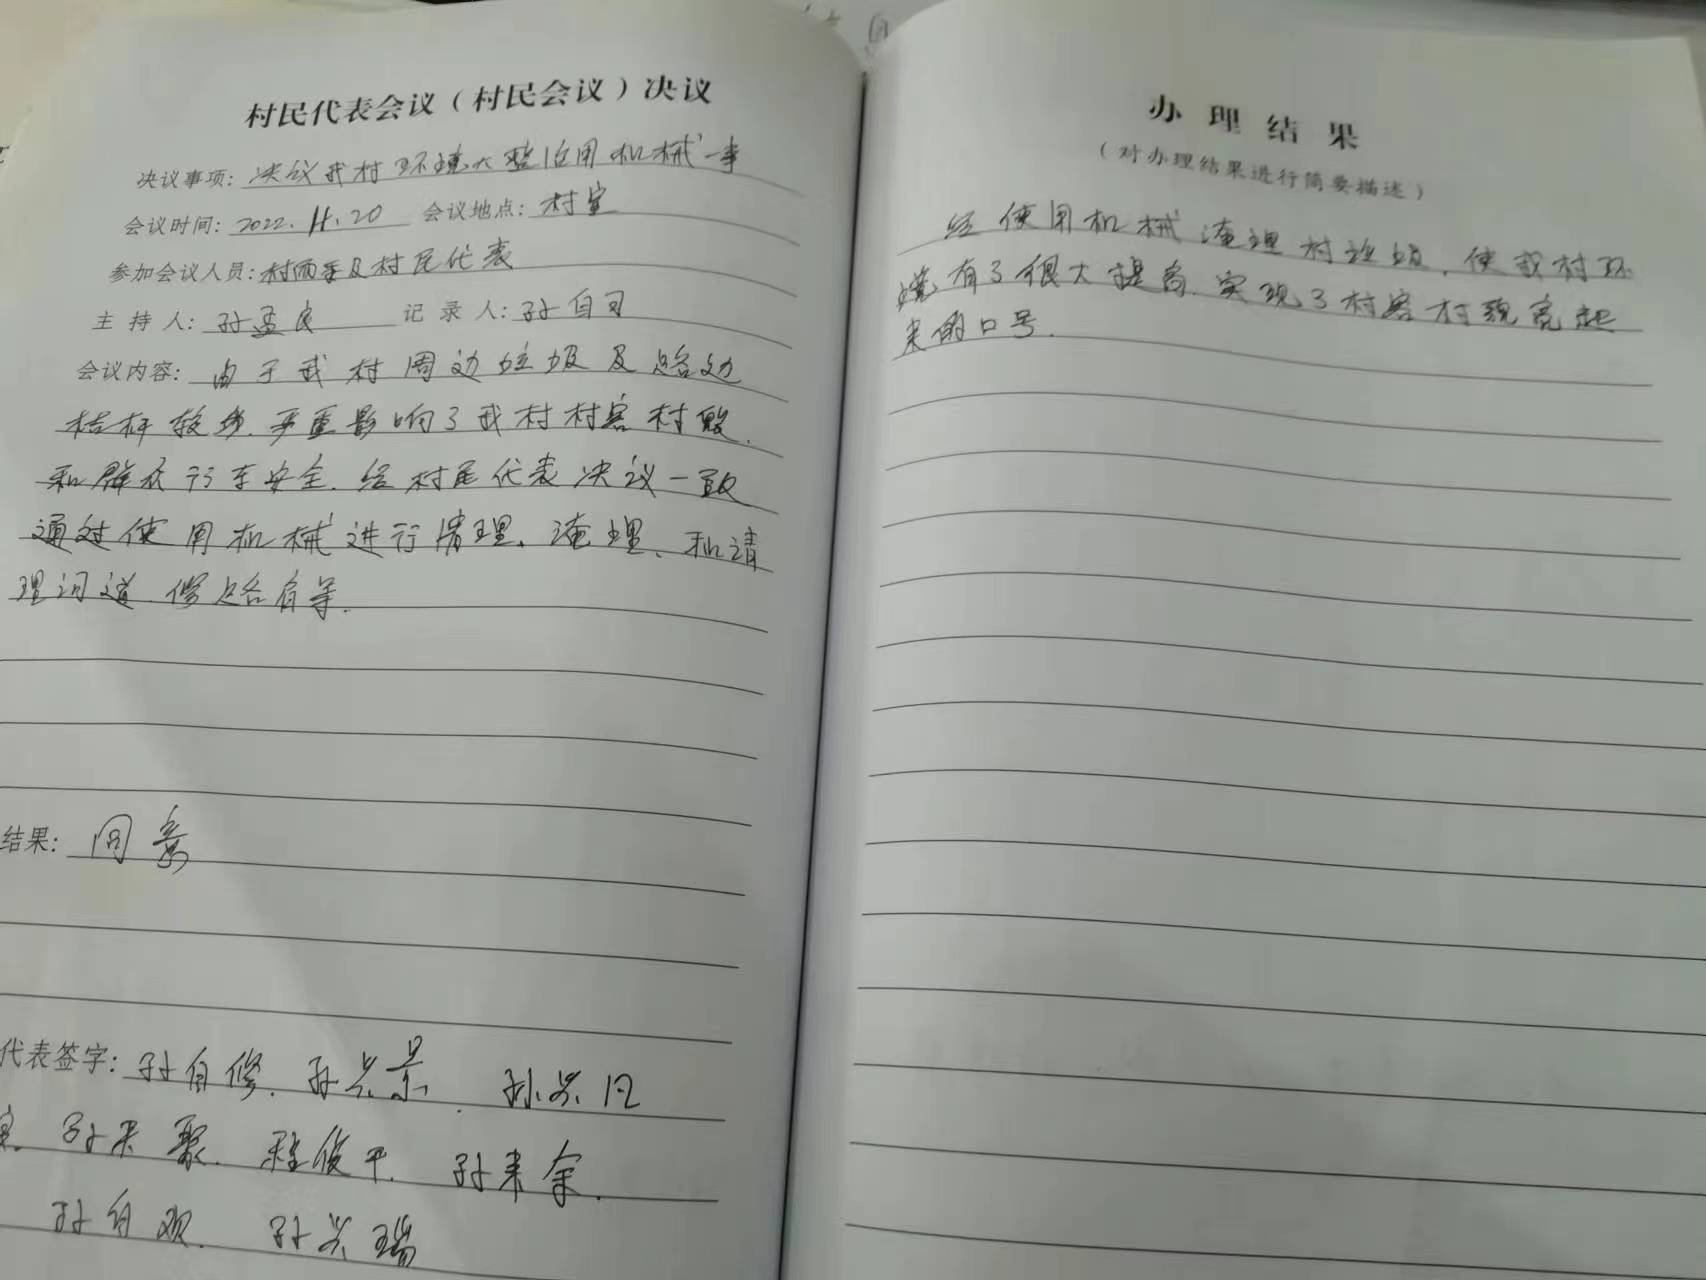 村民代表会议（村民会议）决议
决议事项：决议我村环境大整治用机械一事
会议时间：2022.11.20 会议地点：村室
参加会议人员：村两委及村民代表
主持人：孙孟良 记录人：孙自习
会议内容：由于我村周边垃圾及路边
秸秆较多.严重影响了我村村容村貌.
和群众行车安全.经村民代表决议一致
通过使用机械进行清理、淹埋、和清
理河道.修路肩等.
结果：同意
代表签字：孙自修.孙兴景.孙兴凡
孙来聚.程俊平.孙来余.
孙自欢.孙兴瑞
办理结果
（对办理结果进行简要描述）
经使用机械淹埋村垃圾.使我村环
境有了很大提高.实现了村容村貌亮起
来的口号.